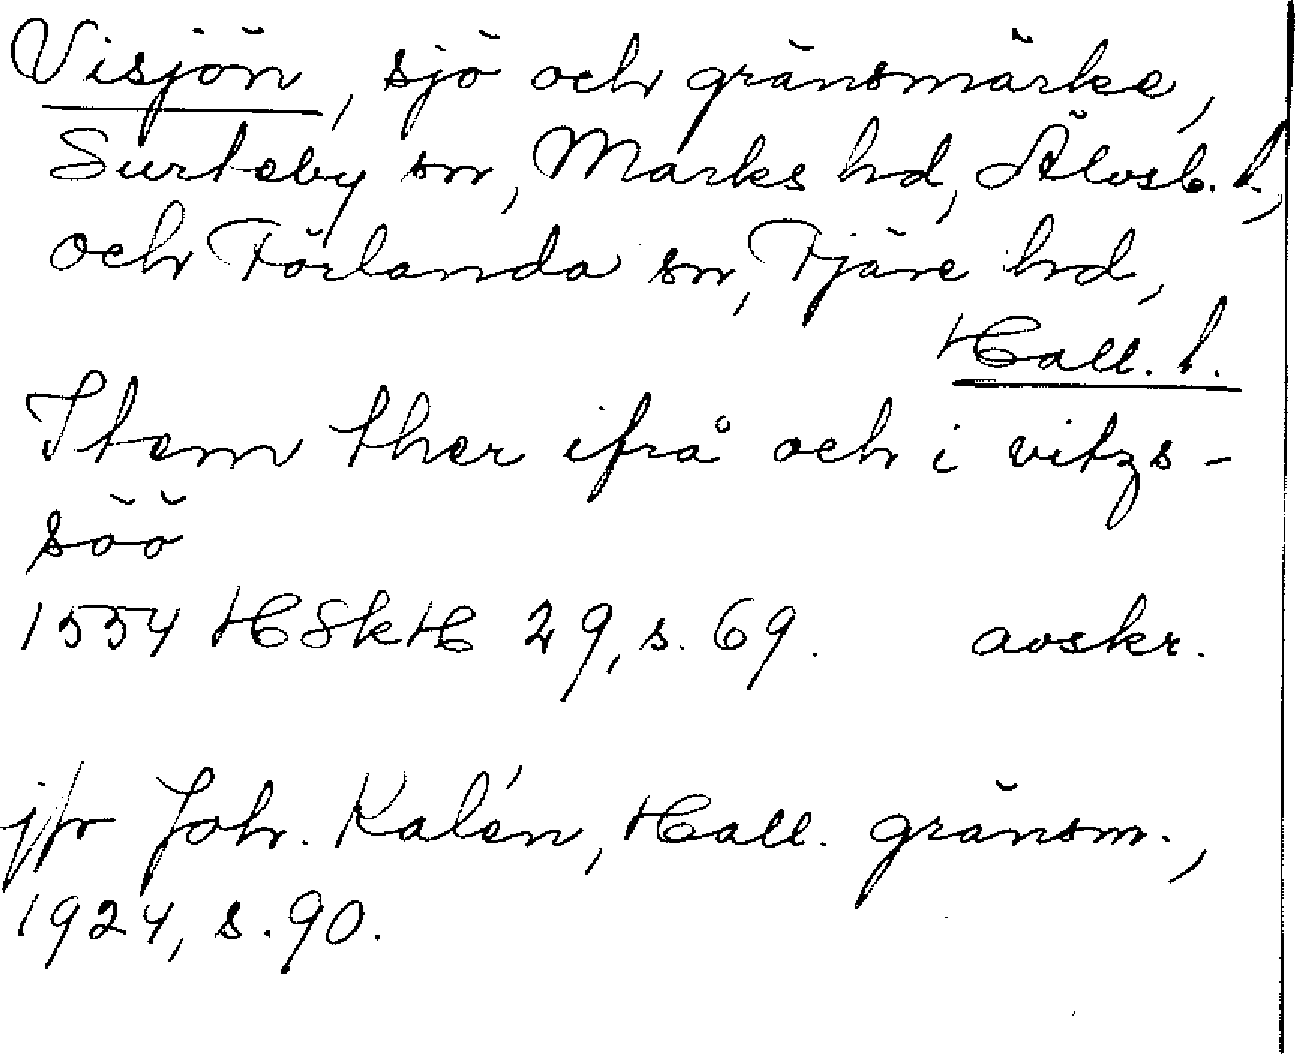 Visjön, sjö och gränsmärke,
Surteby sn, Marks hd, Älvsb. l.,
och Förlanda sn, Fjäre hd,
Hall. l.
Item ther ifrå och i vitzs-
söö
1554 HSkH 29, s. 69. avskr.
jfr Joh. Kalén, Hall. gränsm.,
1924, s. 90.